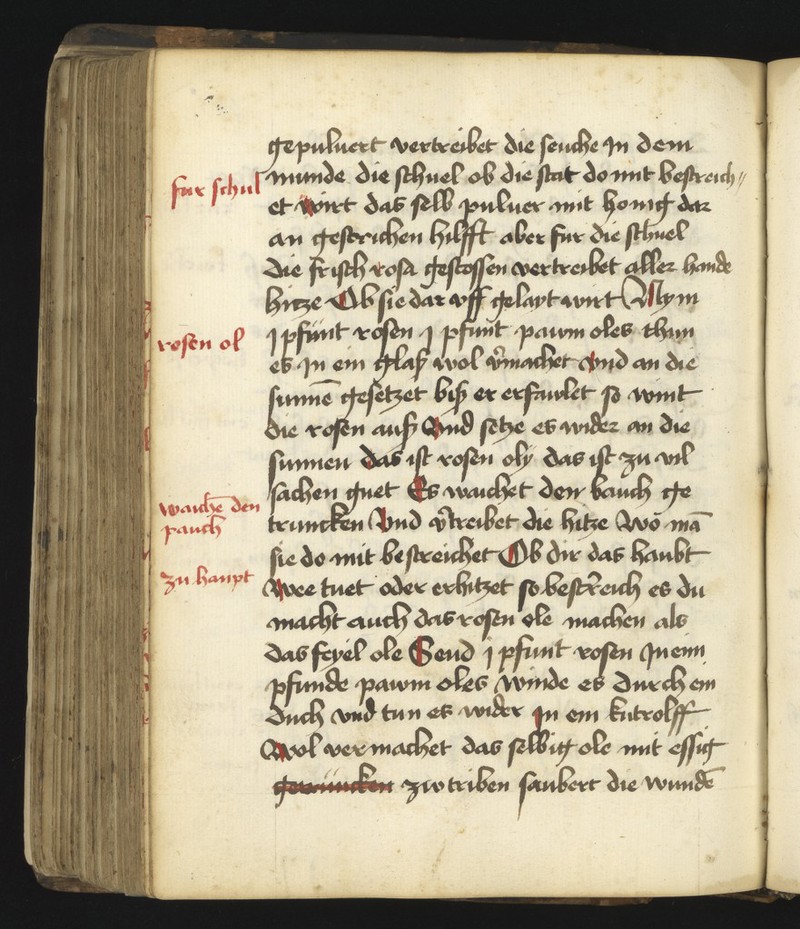 gepuluert vertreibet die seuche Jn dem
fur schul
munde die schuel ob die stat do mit bestreich〃
et wirt das selb puluer mit honig dar
an gestrichen hilfft aber fur die schuel
die frisch rosa gestossen vertreibet aller hande
hitze Ob sie dar vff gelayt wirt Nym
rosen ol
j pfunt rosen j pfunt pawm oles thun
es Jn ein glaß wol v̄machet vnd an die
sunnē gesetzet biß er erfawlet so wint
die rosen auß Vnd setze es wider an die
sunnen das ist rosen oly das ist zu vil
waichē den
sachen guet Es waichet den bauch ge
pauch
truncken Vnd v̄treibet die hitze Wo mā
sie do mit bestreichet Ob dir das haubt
zu haupt
Wee tuet oder erhitzet so bestreich es du
macht auch das rosen ole machen als
das feyel ole Seud j pfunt rosen Jn eim
pfunde pawm oles winde es durch ein
duch vnd tun es wider jn ein kutrolff
Wol vermachet das selbig ole mit essig
getruncken zwtriben saubert die wundē